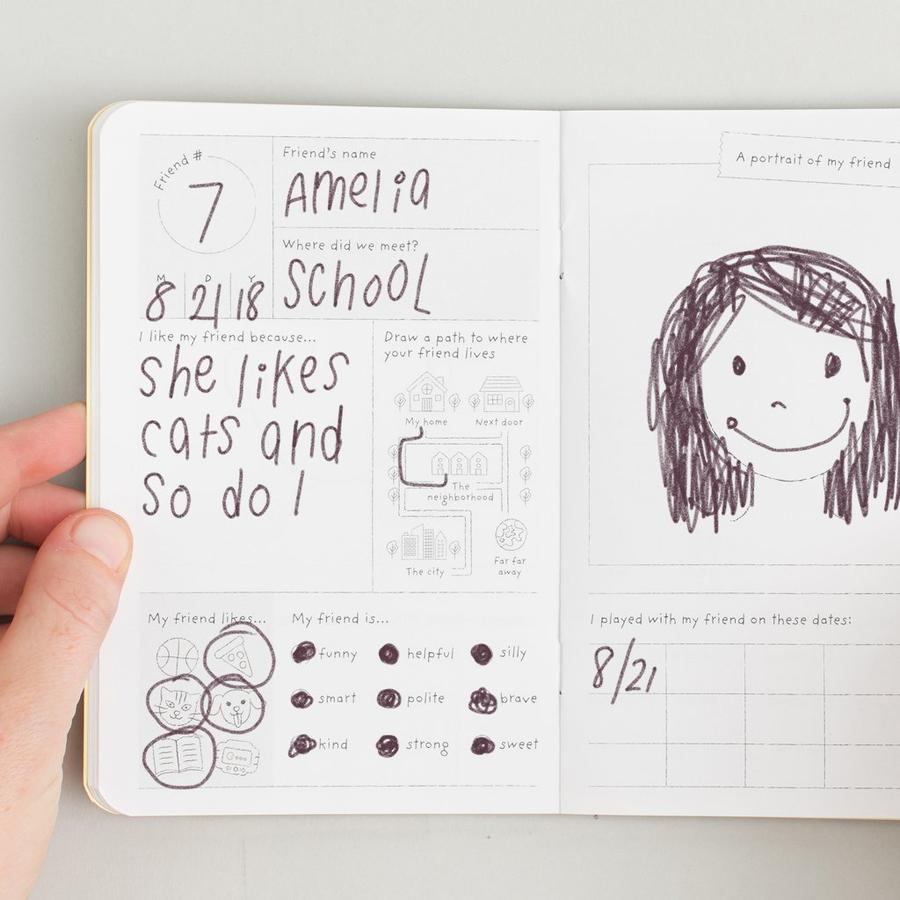 Friend #
7
M D Y
8 21 18
Friend's name
Amelia
Where did we meet?
School
I like my friend because...
she likes
cats and
so do I
Draw a path to where
your friend lives
My home
Next door
The
neighborhood
The city
Far far
away
My friend likes...
My friend is...
funny helpful silly
smart polite brave
kind strong sweet
A portrait of my friend
I played with my friend on these dates:
8/21